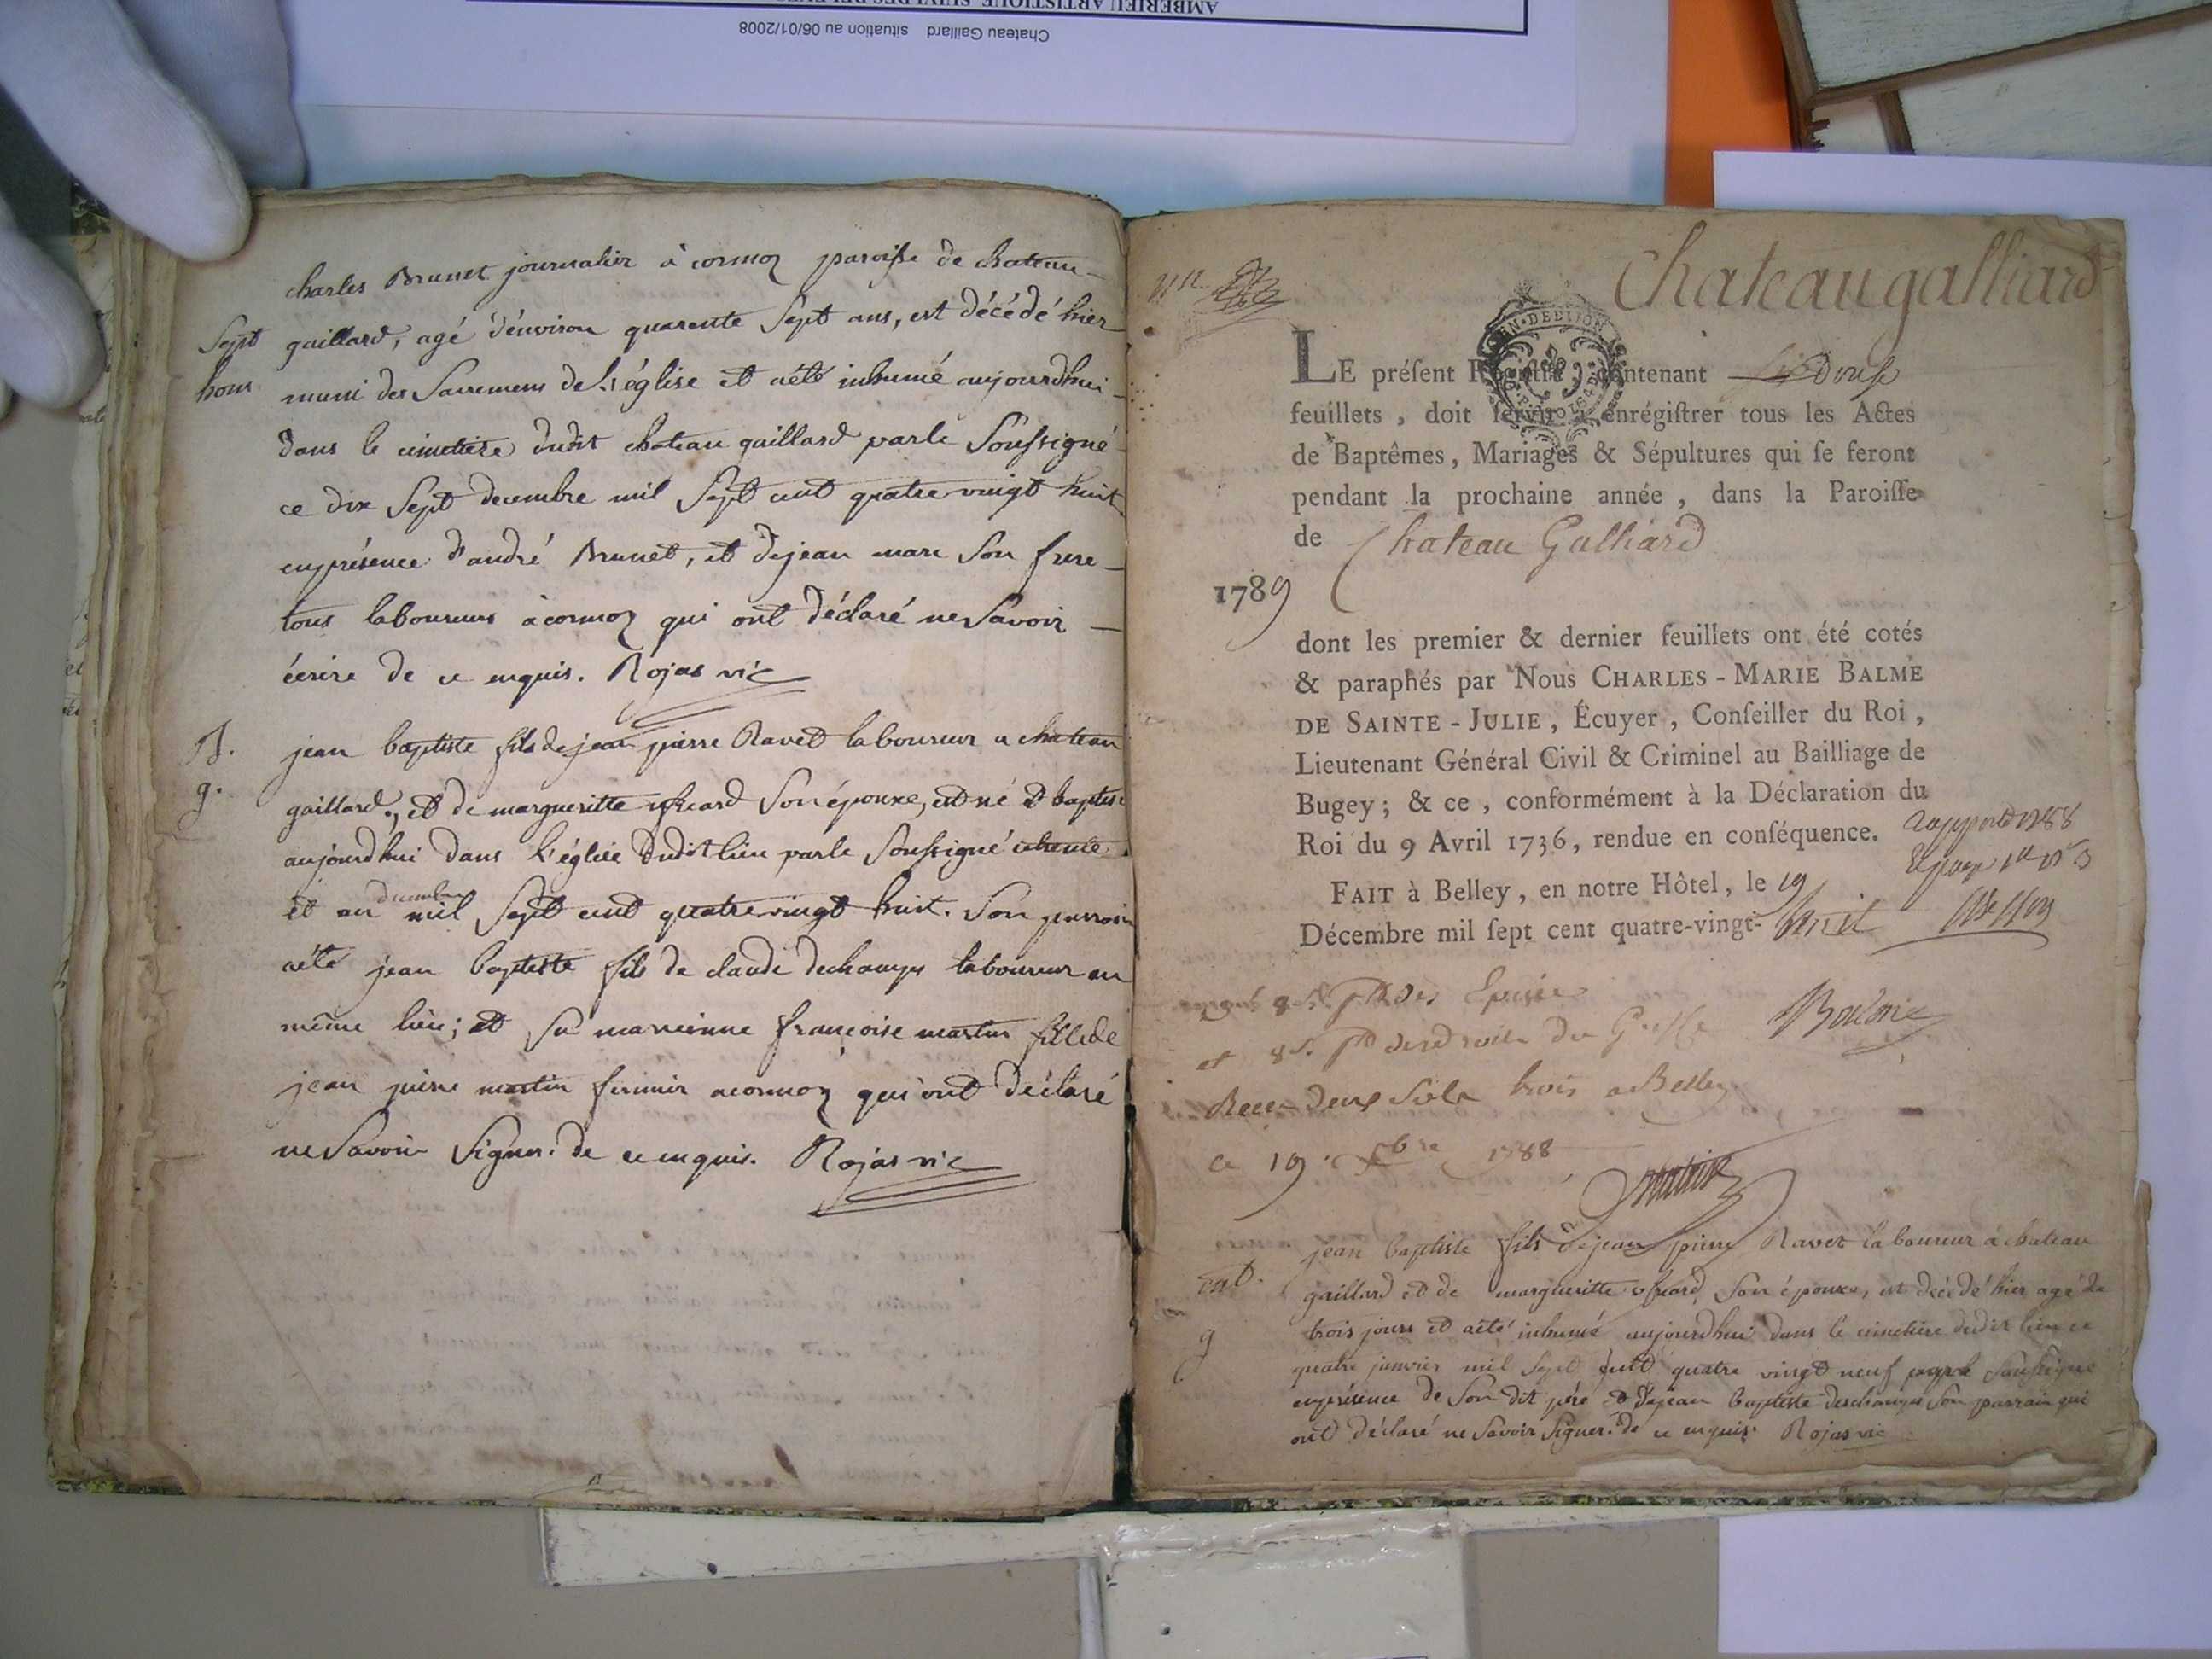 AMBERIEU ARTISTIQUE SUIVI DES
Chateau Gaillard situation au 06/01/2008
charles Brunet journalier à cormoz paroisse de chateau
Sept
gaillard, agé d'environ quarente Sept ans, est décédé hier
hom
muni des Sacremens de l'église et a été inhumé aujourdhui
dans le cimetiere dudit chateau gaillard par le Soussigné
ce dix Sept decembre mil Sept cent quatre vingt huit
en présence d'andré Brunet, et de jean marc Son frere
tous laboureurs à cormoz qui ont déclaré ne Savoir
écrire de ce enquis. Rojas vic
B.
jean baptiste fils de jean pierre Ravet laboureur a chateau
g.
gaillard, et de margueritte Son épouse, est né et baptisé
aujourdhui dans l'église dudit lieu par le Soussigné ce trente
decembre
et un mil Sept cent quatre vingt huit. Son parrain
a été jean baptiste fils de claude dechamps laboureur au
même lieu; et Sa marrainne francoise martin fille de
jean pierre martin fermier a cormoz qui ont déclaré
ne Savoir Signer. de ce enquis. Rojas vic
chateaugalliard
LE préſent Regiſtre, contenant Douse
feuillets, doit ſervir à enrégiſtrer tous les Actes
de Baptêmes, Mariages & Sépultures qui ſe feront
pendant la prochaine année, dans la Paroiſſe
de Chateau Galliard
1789
dont les premier & dernier feuillets ont été cotés
& paraphés par Nous CHARLES-MARIE BALME
DE SAINTE-JULIE, Écuyer, Conſeiller du Roi,
Lieutenant Général Civil & Criminel au Bailliage de
Bugey; & ce, conformément à la Déclaration du
Roi du 9 Avril 1736, rendue en conſéquence.
FAIT à Belley, en notre Hôtel, le 19
Décembre mil ſept cent quatre-vingt-huit
et 8 s. des droits du Greffe
Recu deux Sols trois a Belley
ce 19 Xbre 1788
jean baptiste fils de jean pierre Ravet laboureur à chateau
gaillard et de margueritte Son épouse, est décédé hier agé de
trois jours et a été inhumé aujourdhui dans le cimetiere dudit lieu ce
g
quatre janvier mil Sept Cent quatre vingt neuf par le Soussigné
en présence de Son dit père et de jean baptiste deschamps Son parrain qui
ont déclaré ne Savoir Signer. de ce enquis. Rojas vic